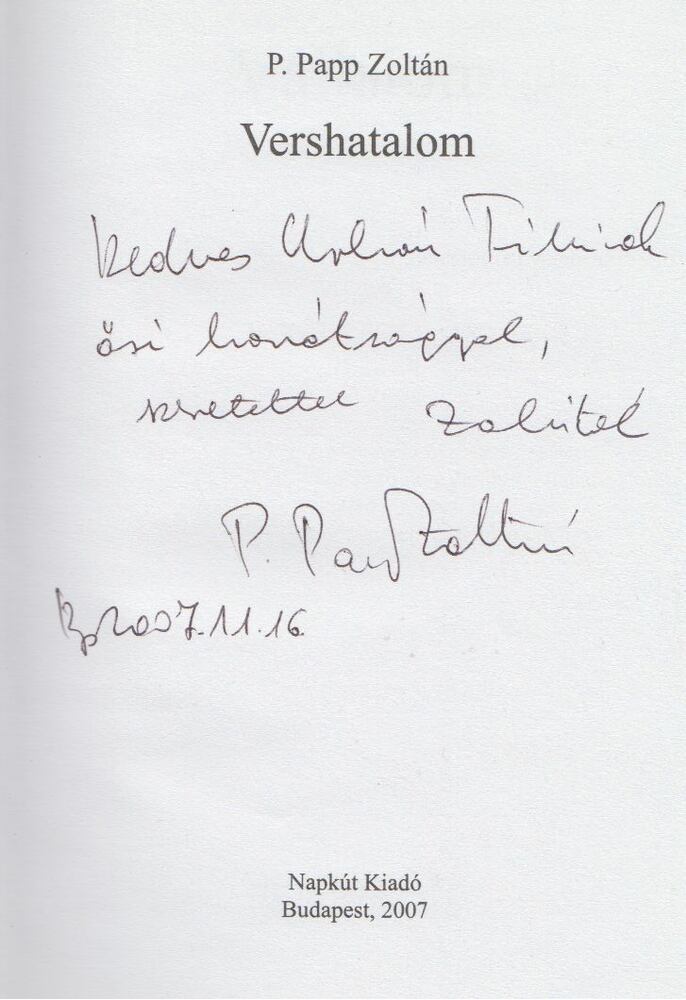 P. Papp Zoltán
Vershatalom
Kedves
ősi barátsággal,
szeretettel
P. Papp Zoltán
Bp. 2007.11.16.
Napkút Kiadó
Budapest, 2007